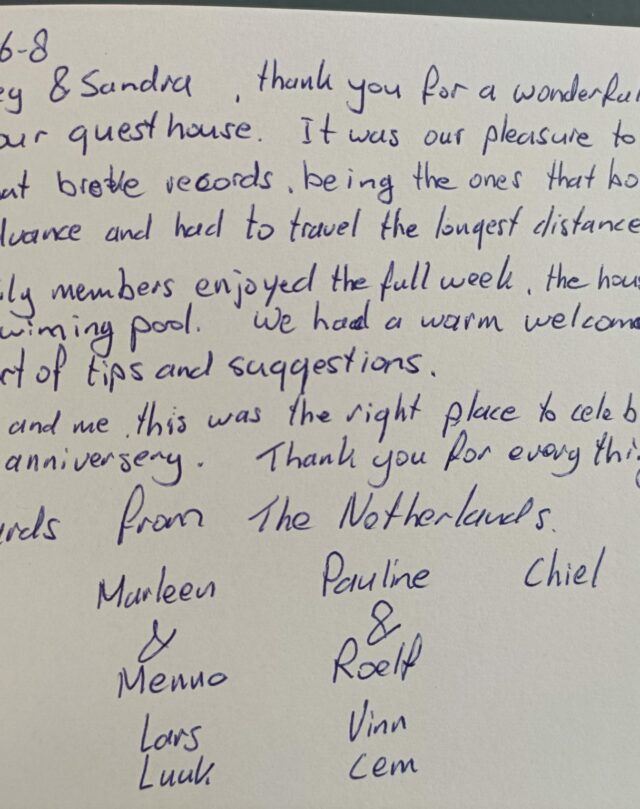 6-8
ey & Sandra, thank you for a wonderful
our guesthouse. It was our pleasure to
at broke records, being the ones that bo
dvance and had to travel the longest distance
ily members enjoyed the full week, the hous
wiming pool. We had a warm welcome
rt of tips and suggestions.
and me, this was the right place to celeb
anniversery. Thank you for every thi
ards from The Netherlands.
Marleen Pauline Chiel
& &
Menno Roelf
Lars Vinn
Luuk Cem